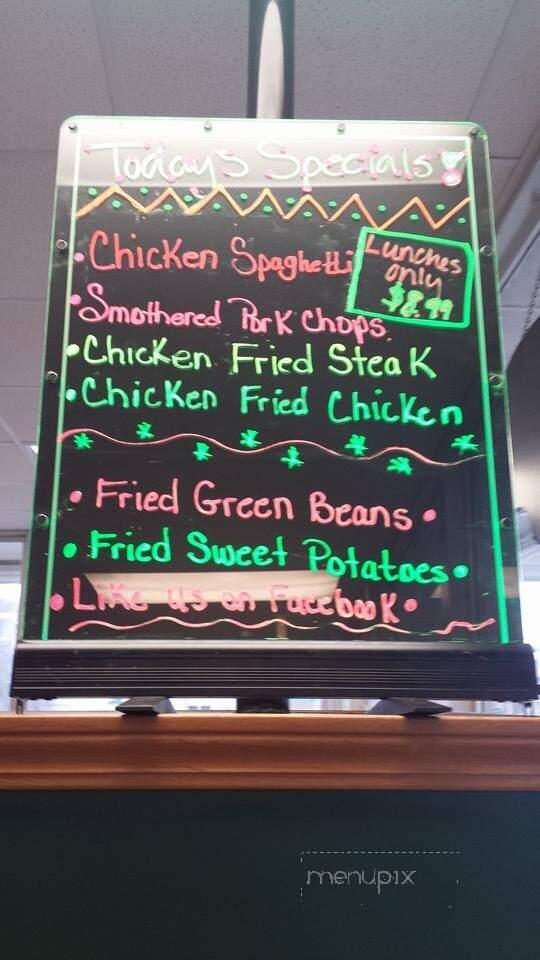 Today's Specials!
• Chicken Spaghetti
Lunches
only
$8.99
• Smothered Pork Chops
• Chicken Fried Steak
• Chicken Fried Chicken
• Fried Green Beans •
• Fried Sweet Potatoes •
• Like us on Facebook •
menupix